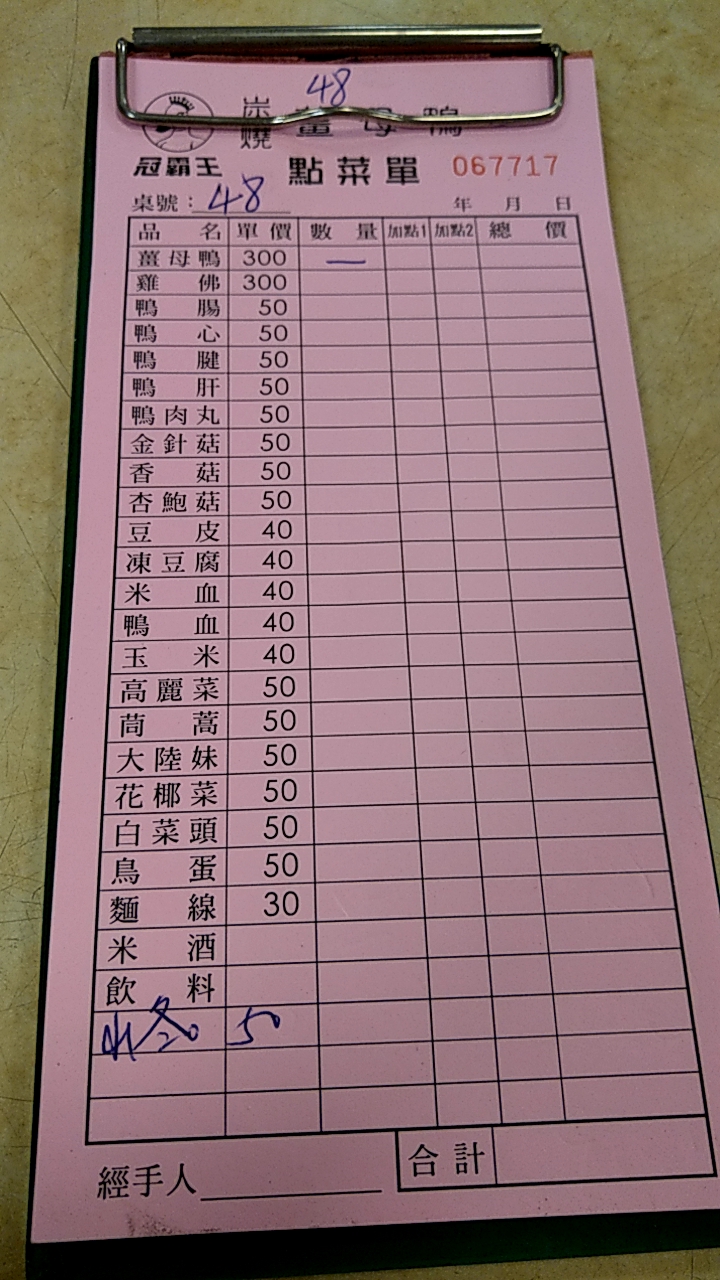 48
炭燒 薑母鴨
冠霸王 點菜單 067717
桌號：48 年 月 日
品名 單價 數量 加點1 加點2 總價
薑母鴨 300 一
雞佛 300
鴨腸 50
鴨心 50
鴨腱 50
鴨肝 50
鴨肉丸 50
金針菇 50
香菇 50
杏鮑菇 50
豆皮 40
凍豆腐 40
米血 40
鴨血 40
玉米 40
高麗菜 50
茼蒿 50
大陸妹 50
花椰菜 50
白菜頭 50
鳥蛋 50
麵線 30
米酒
飲料
50
經手人 合計